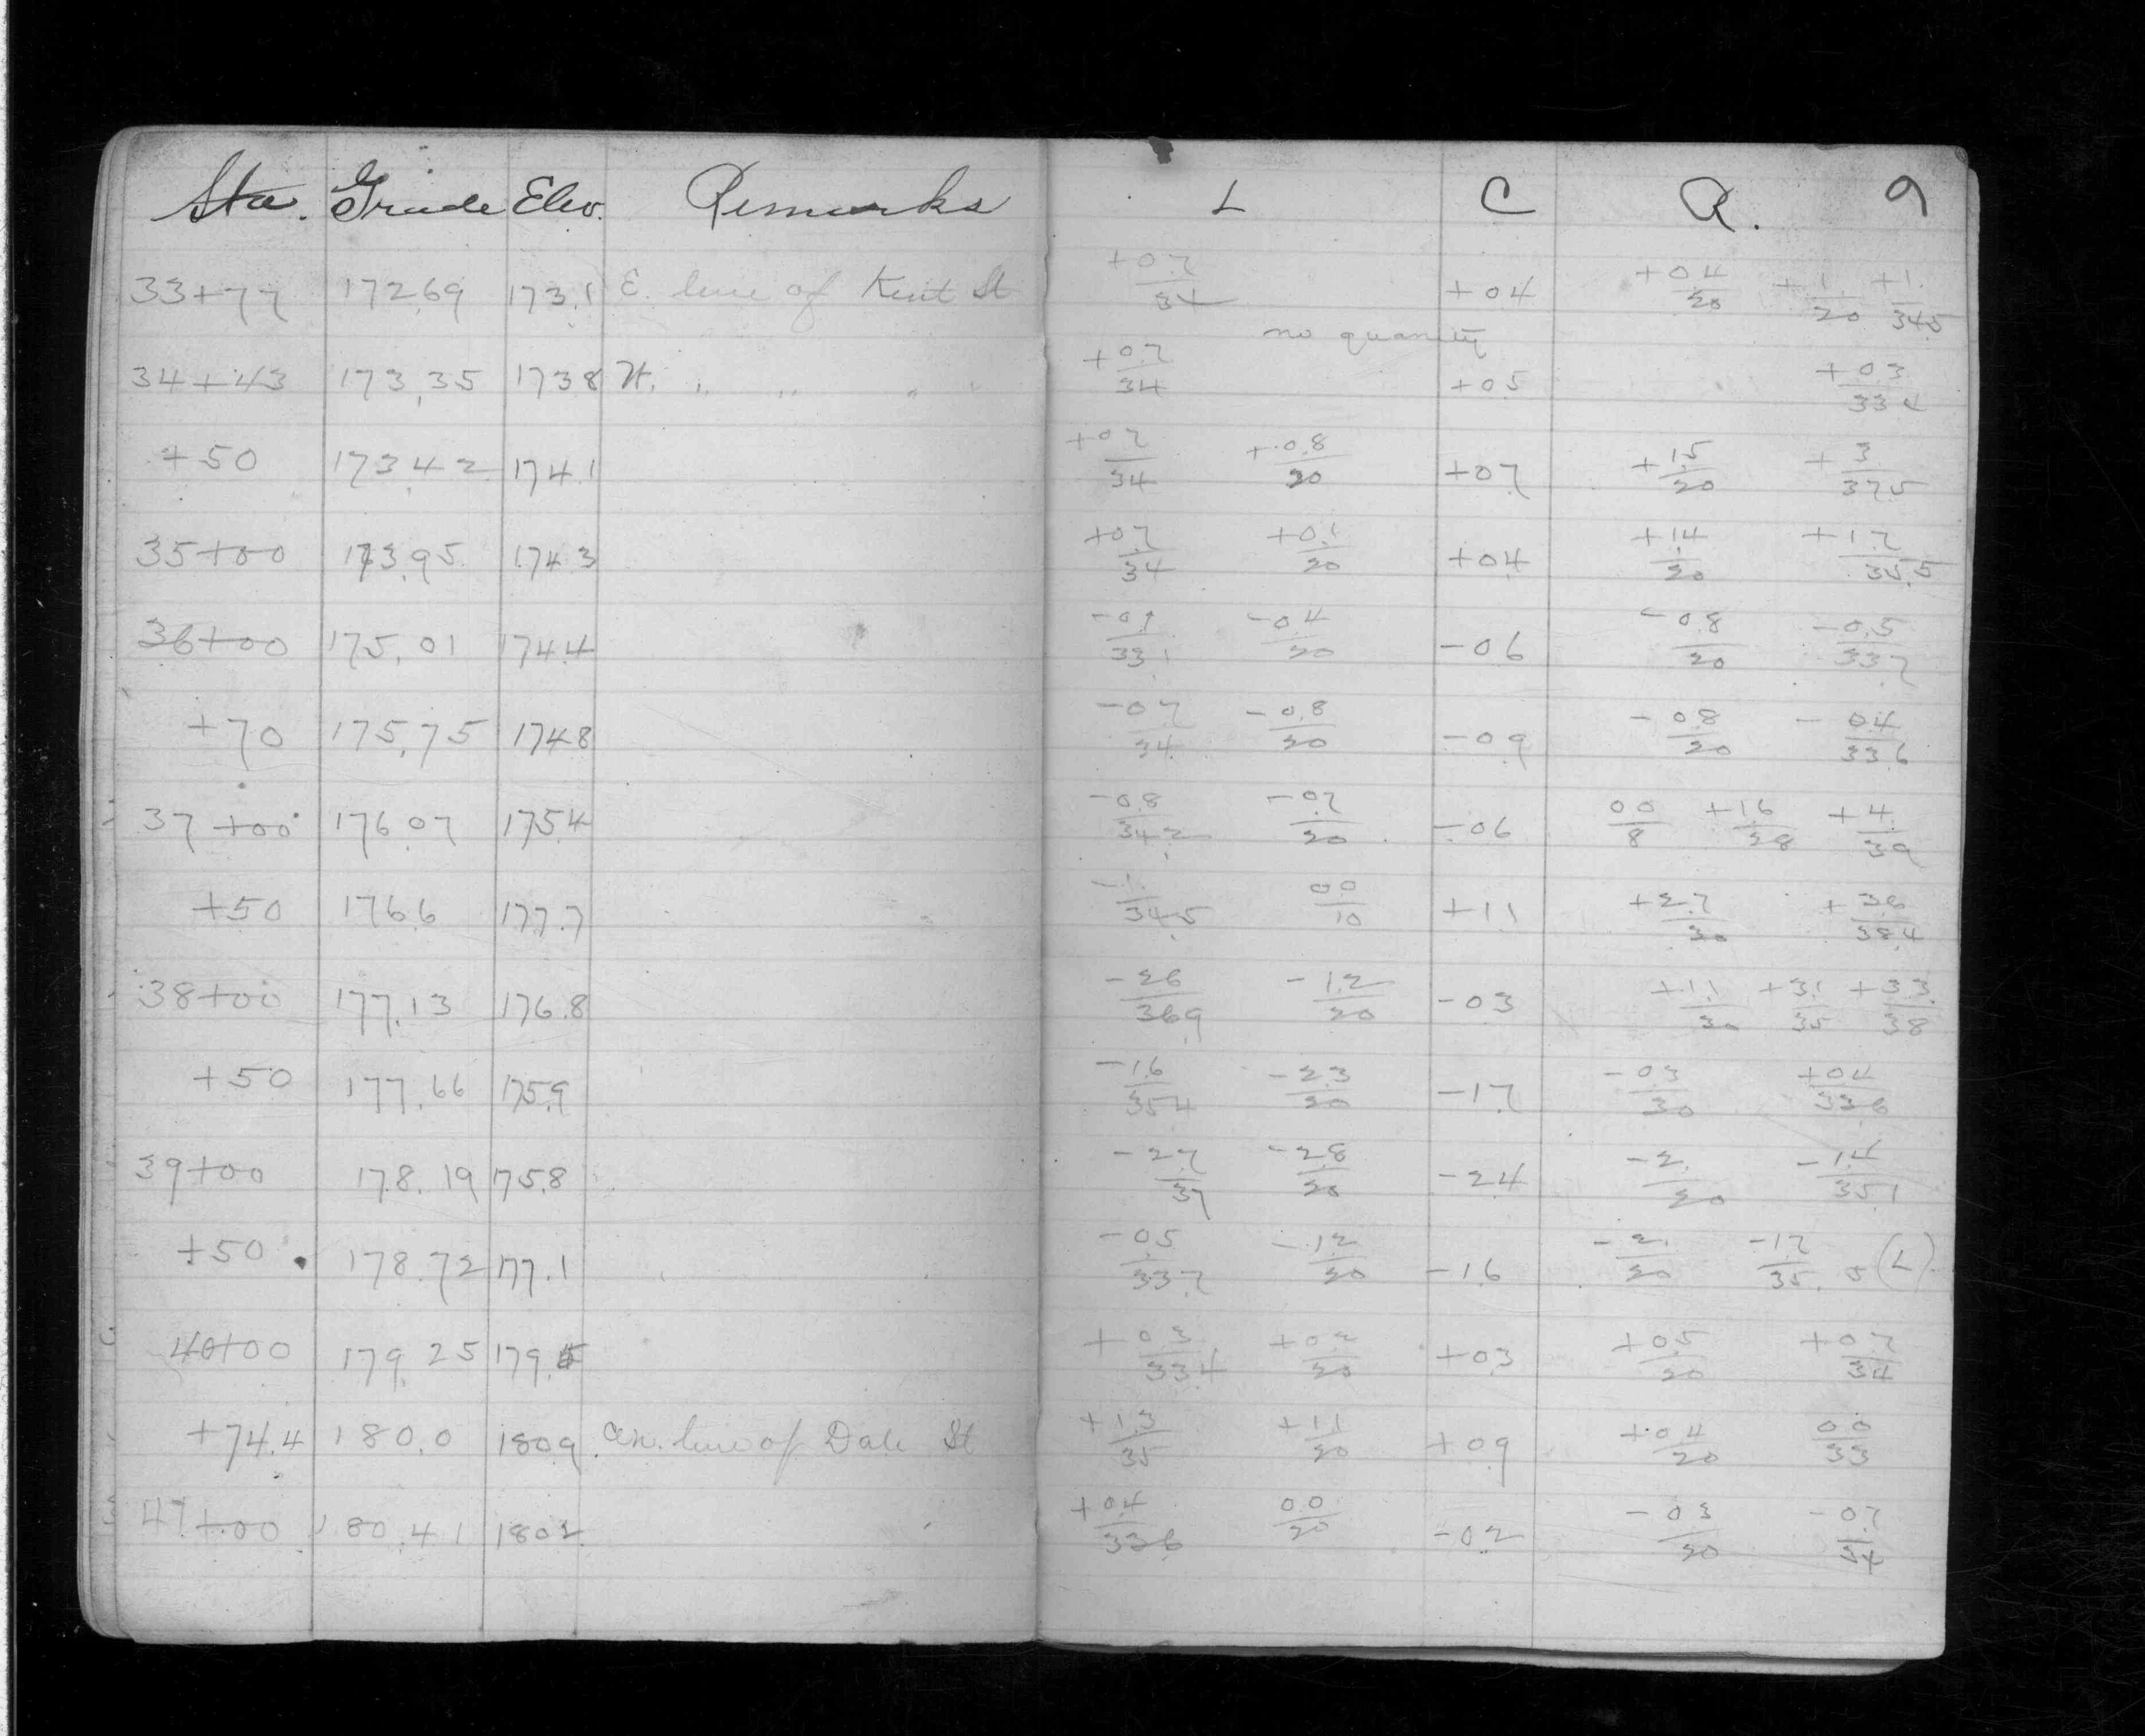 Sta. Grade Elev. Remarks L C R. 9
33+77 172.69 173.1 E. line of Kent St +0.7/34 +0.4 +0.4/20 +1./20 +1./34.5
no quantity
34+43 173.35 173.8 W. " " " " +0.7/34 +0.5 +0.3/33.4
+50 173.42 174.1 +0.7/34 +0.8/20 +0.7 +1.5/20 +3/37.5
35+00 173.95 174.3 +0.7/34 +0.1/20 +0.4 +1.4/20 +1.7/35.5
36+00 175.01 174.4 -0.1/33.1 -0.4/20 -0.6 -0.8/20 -0.5/33.7
+70 175.75 174.8 -0.7/34 -0.8/20 -0.9 -0.8/20 -0.4/33.6
37+00 176.07 175.4 -0.8/34.2 -0.7/20 -0.6 0.0/8 +1.6/28 +4./39
+50 176.6 177.7 -1./34.5 0.0/10 +1.1 +2.7/30 +3.6/38.4
38+00 177.13 176.8 -2.6/36.9 -1.2/20 -0.3 +1.1/30 +3.1/35 +3.3/38
+50 177.66 175.9 -1.6/35.4 -2.3/20 -1.7 -0.3/30 +0.4/33.6
39+00 178.19 175.8 -2.7/37 -2.8/20 -2.4 -2./20 -1.4/35.1
+50 178.72 177.1 -0.5/33.7 -1.2/20 -1.6 -2./20 -1.7/35.5 (L)
40+00 179.25 179.5 +0.3/33.4 +0.2/20 +0.3 +0.5/20 +0.7/34
+74.4 180.0 180.9 Cen. line of Dale St +1.3/35 +1.1/20 +0.9 +0.4/20 0.0/33
41+00 180.41 180.2 +0.4/33.6 0.0/20 -0.2 -0.3/20 -0.7/34